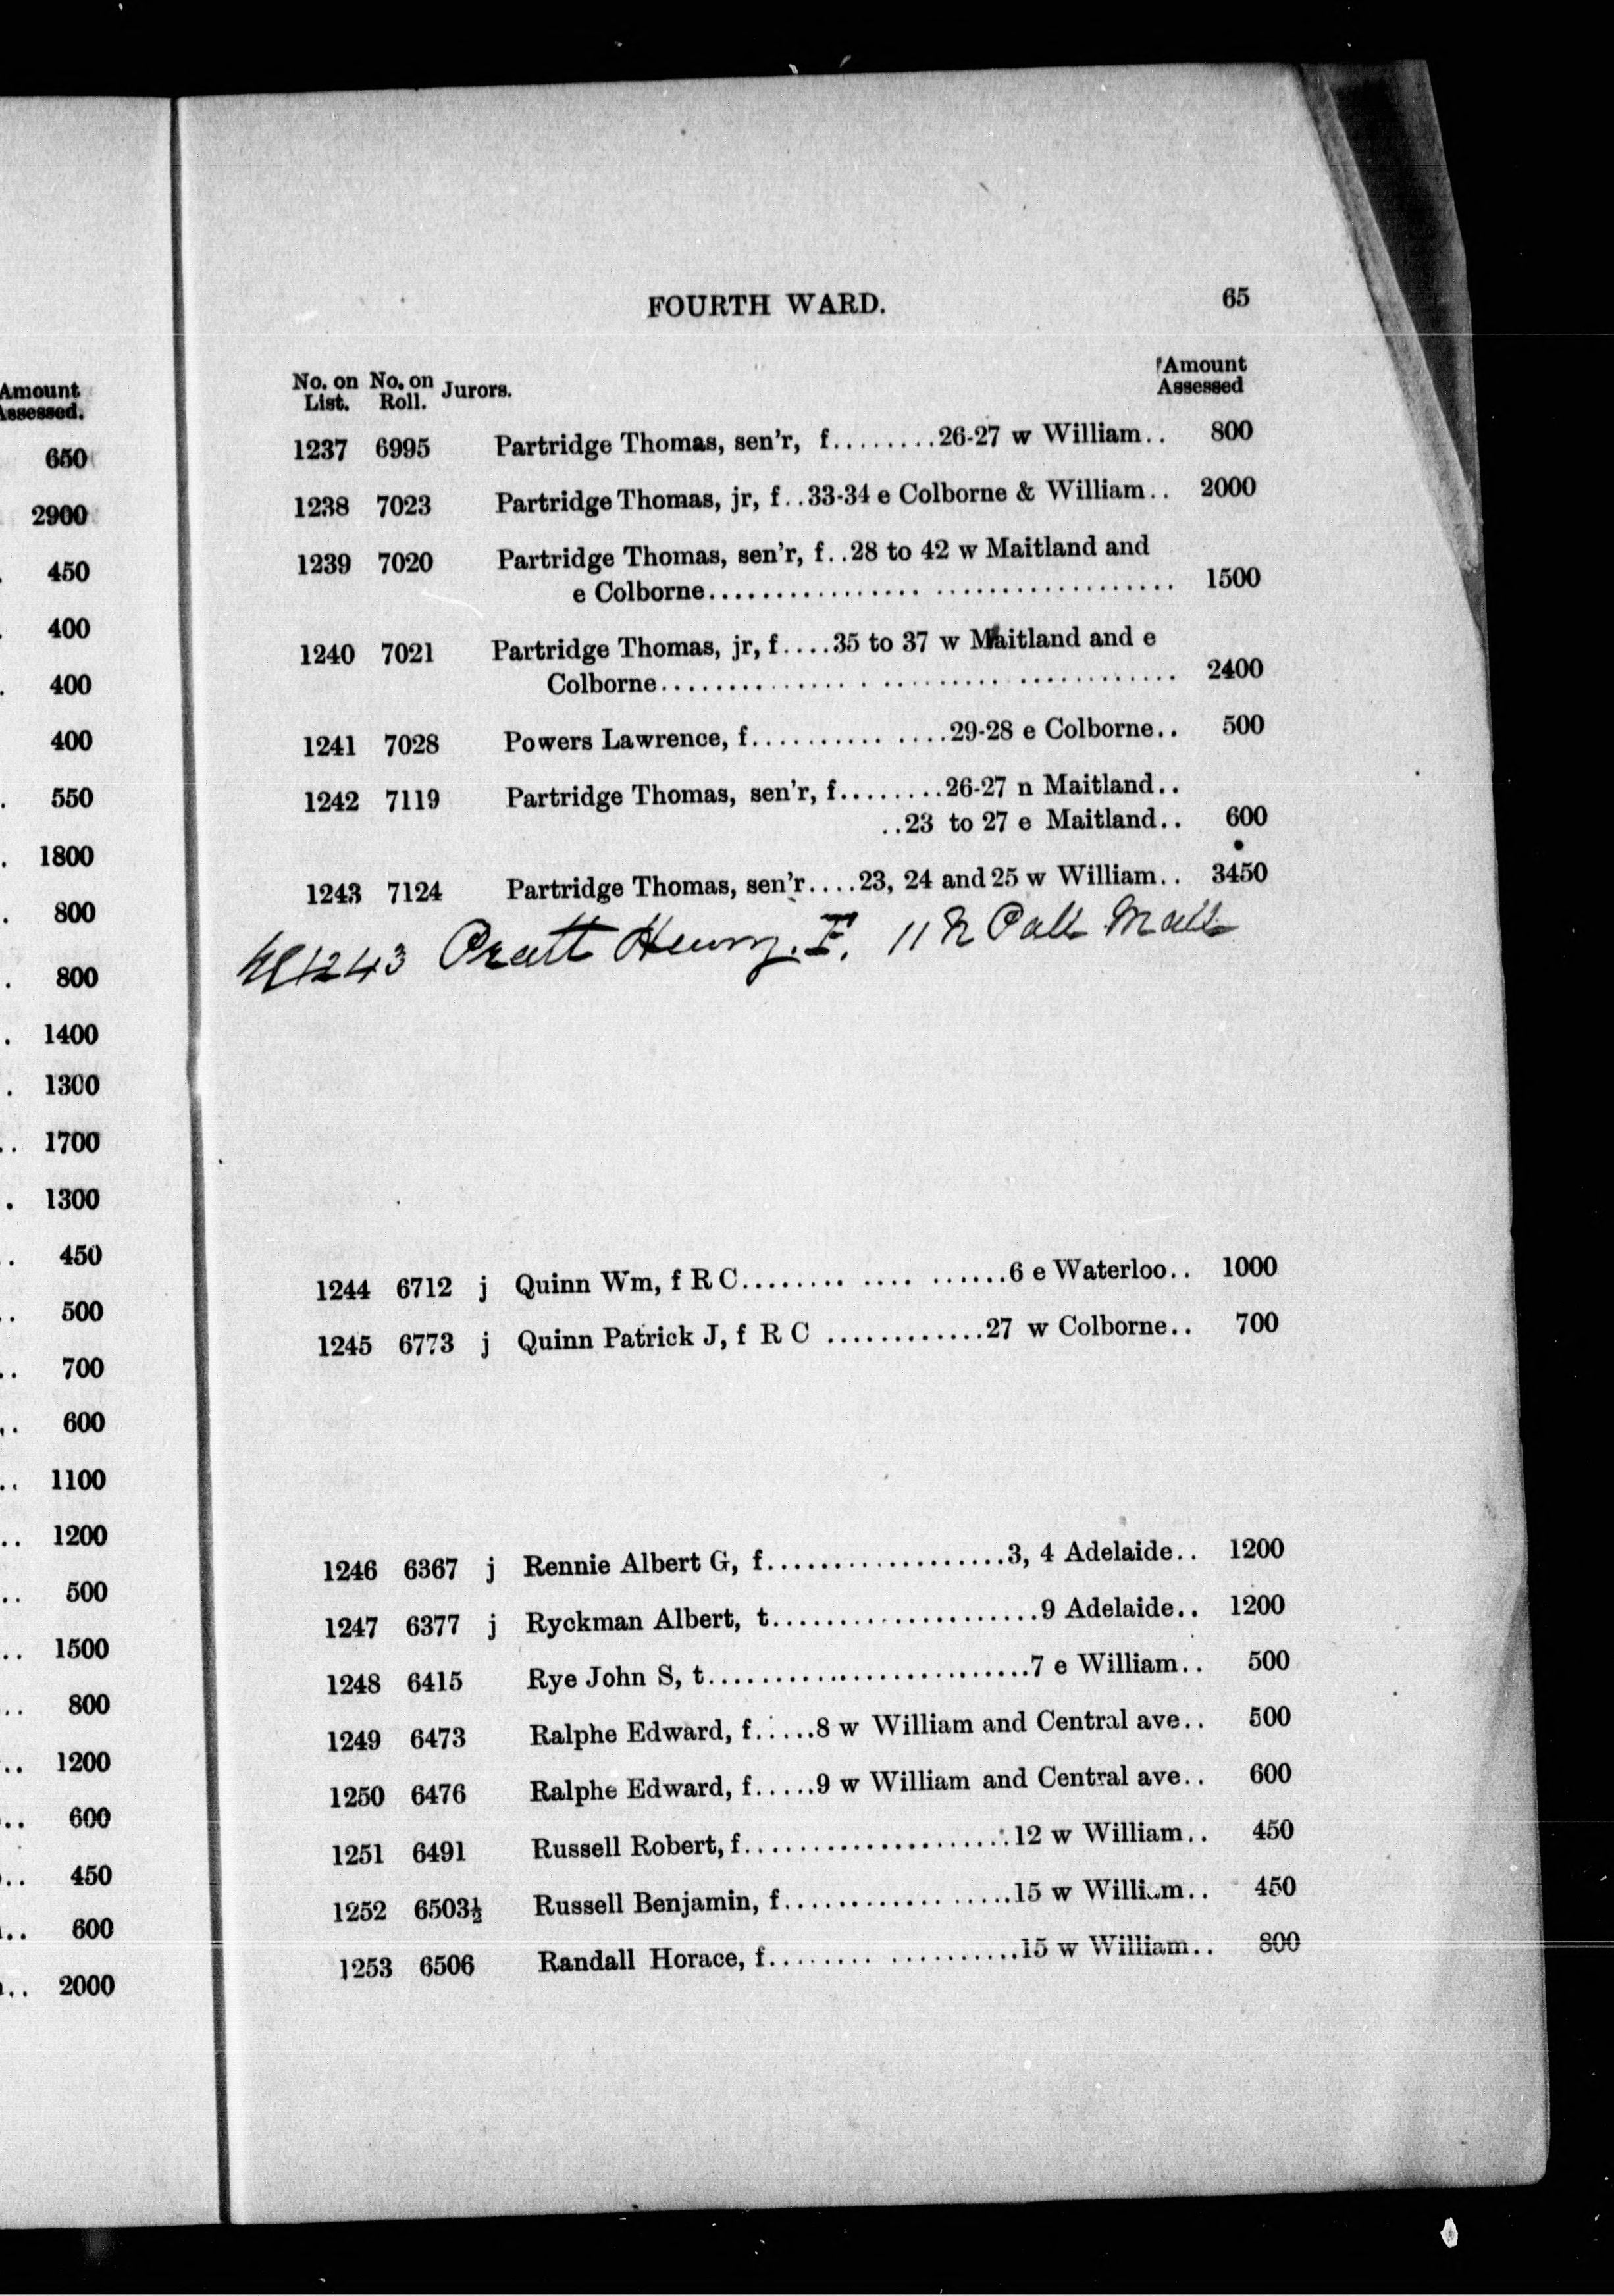 Amount
Assessed.
650
2900
450
400
400
400
550
1800
800
800
1400
1300
1700
1300
450
500
700
600
1100
1200
500
1500
800
1200
600
450
600
2000
FOURTH WARD. 65
No. on List. No. on Roll. Jurors. Amount Assessed
1237 6995 Partridge Thomas, sen'r, f........26-27 w William.. 800
1238 7023 Partridge Thomas, jr, f..33-34 e Colborne & William.. 2000
1239 7020 Partridge Thomas, sen'r, f..28 to 42 w Maitland and
e Colborne.................................. 1500
1240 7021 Partridge Thomas, jr, f....35 to 37 w Maitland and e
Colborne...................................... 2400
1241 7028 Powers Lawrence, f.............. 29-28 e Colborne.. 500
1242 7119 Partridge Thomas, sen'r, f........26-27 n Maitland..
..23 to 27 e Maitland.. 600
1243 7124 Partridge Thomas, sen'r....23, 24 and 25 w William.. 3450
1243 Pratt Henry. F. 11 N Pall Mall
1244 6712 j Quinn Wm, f R C........ .... ......6 e Waterloo.. 1000
1245 6773 j Quinn Patrick J, f R C ............27 w Colborne.. 700
1246 6367 j Rennie Albert G, f..................3, 4 Adelaide.. 1200
1247 6377 j Ryckman Albert, t....................9 Adelaide.. 1200
1248 6415 Rye John S, t........................7 e William.. 500
1249 6473 Ralphe Edward, f.....8 w William and Central ave.. 500
1250 6476 Ralphe Edward, f.....9 w William and Central ave.. 600
1251 6491 Russell Robert, f....................12 w William.. 450
1252 6503½ Russell Benjamin, f.................15 w William.. 450
1253 6506 Randall Horace, f........ ..........15 w William.. 800